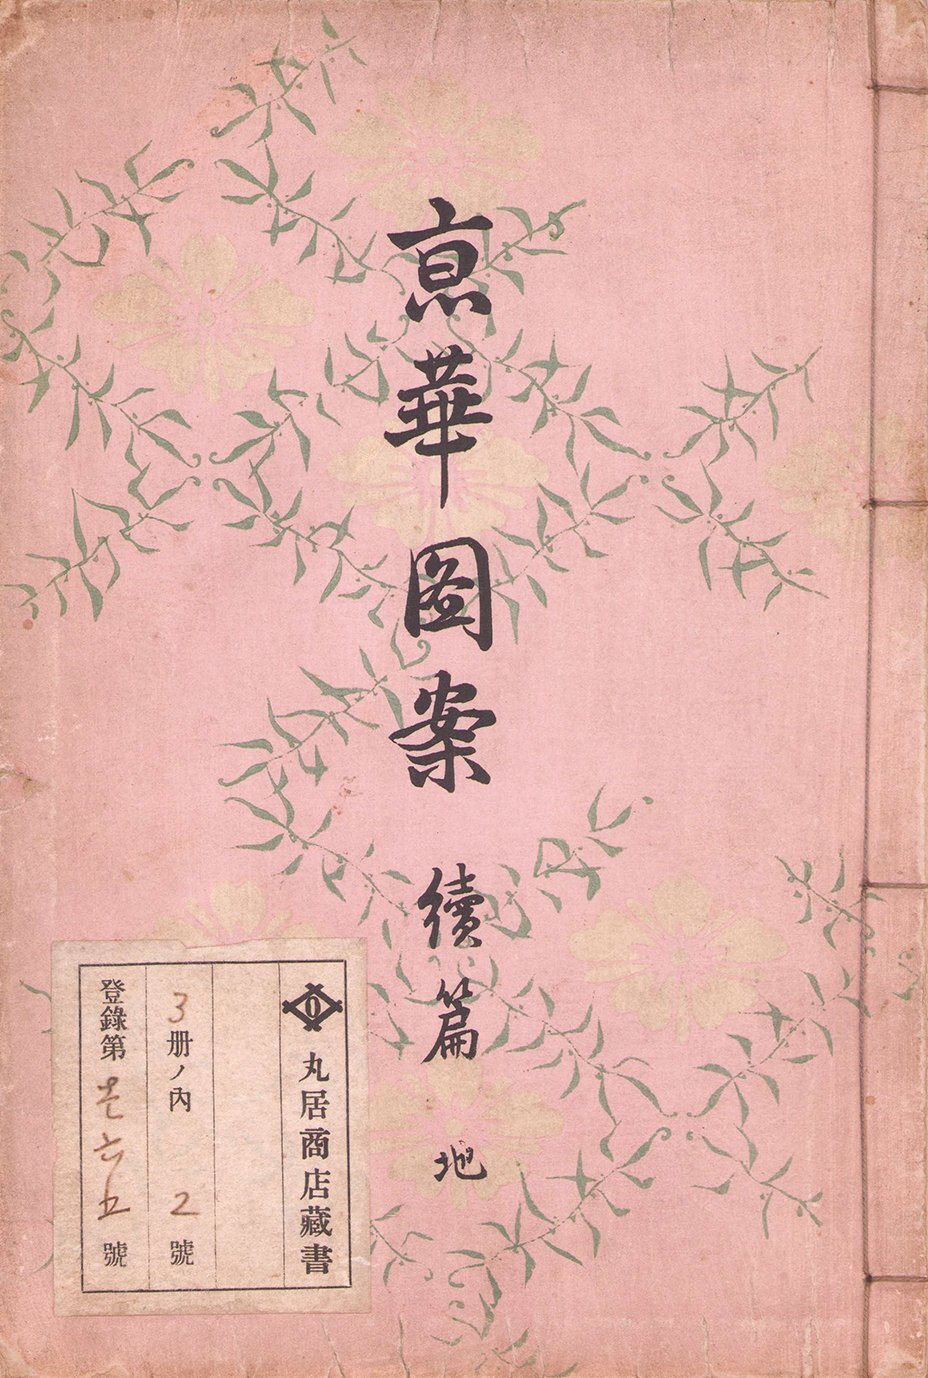 京華圖案 續篇 地
丸居商店藏書
3册ノ內 2號
登錄第 壱六五 號